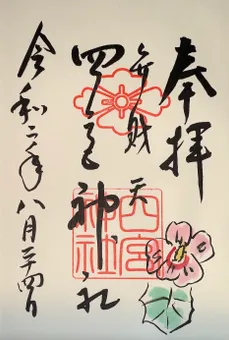 奉拝
弁財天
四宮神社
令和二年八月二十四日
四宮神社